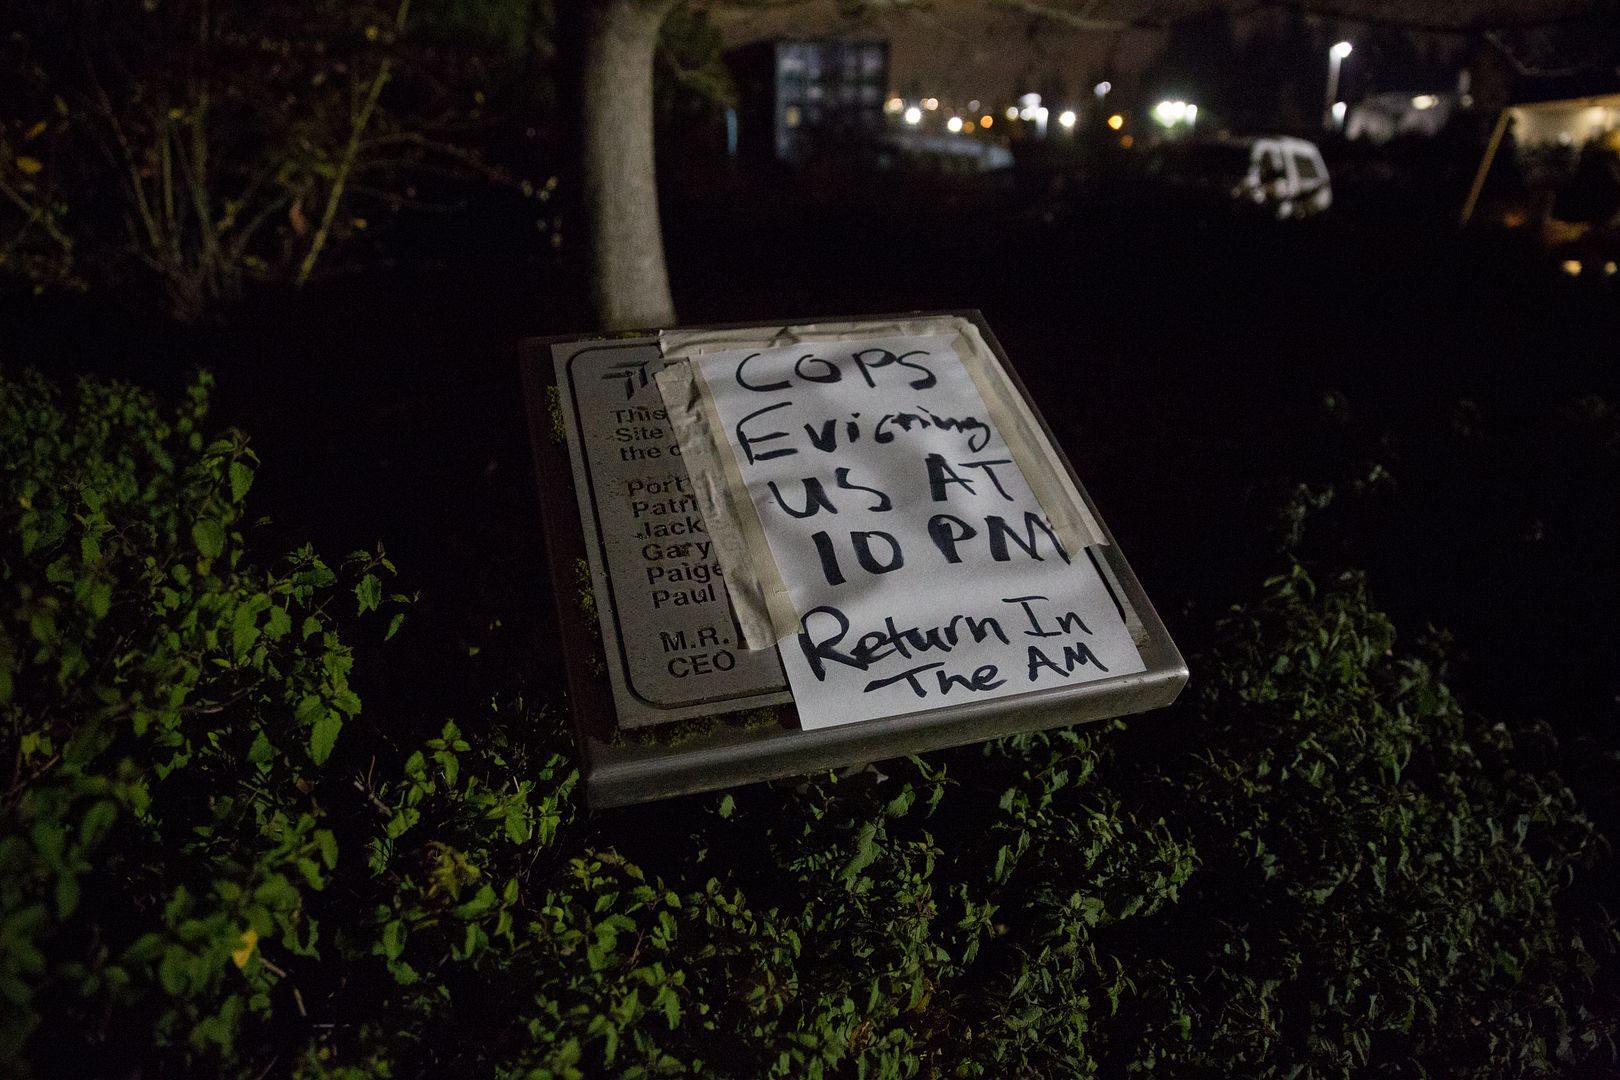 This
Site
the
Port
Patri
Jack
Gary
Paige
Paul
M.R.
CEO
COPS
Evicting
US AT
10 PM
Return In
The AM